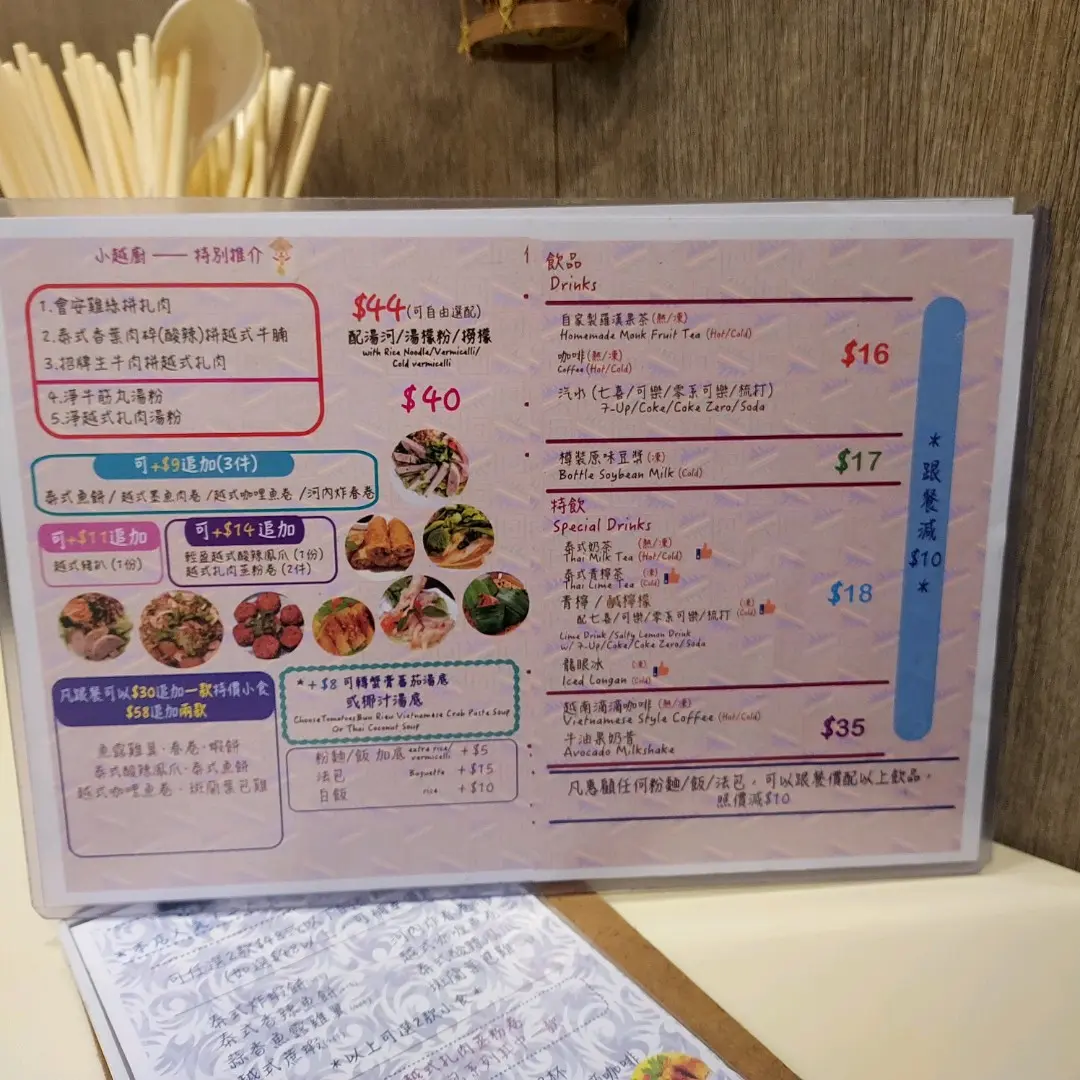 小越廚 —— 特別推介
1.會安雞絲拼扎肉
2.泰式香葉肉碎(酸辣)拼越式牛腩
3.招牌生牛肉拼越式扎肉
4.淨牛筋丸湯粉
5.淨越式扎肉湯粉
$44(可自由選配)
配湯河/湯檬粉/撈檬
with Rice Noodle/Vermicelli/
Cold vermicelli
$40
可+$9追加(3件)
泰式魚餅/越式墨魚肉卷/越式咖哩魚卷/河內炸春卷
可+$11追加
越式豬扒(1份)
可+$14追加
輕盈越式酸辣鳳爪(1份)
越式扎肉蒸粉卷(2件)
凡跟餐可以$30追加一款特價小食
$58追加兩款
魚露雞翼·春卷·蝦餅
泰式酸辣鳳爪·泰式魚餅
越式咖哩魚卷·斑蘭葉包雞
*+$8可轉蟹膏蕃茄湯底
或椰汁湯底
Choose Tomatoes Bun Rieu Vietnamese Crab Paste Soup
Or Thai Coconut Soup
粉麵/飯 加底 extra rice/vermicelli +$5
法包 Baguette +$15
白飯 rice +$10
飲品
Drinks
自家製羅漢果茶(熱/凍)
Homemade Monk Fruit Tea (Hot/Cold)
咖啡(熱/凍)
Coffee(Hot/Cold)
汽水(七喜/可樂/零系可樂/梳打)
7-Up/Coke/Coke Zero/Soda
$16
樽裝原味豆漿(凍)
Bottle Soybean Milk (Cold)
$17
特飲
Special Drinks
泰式奶茶 (熱/凍)
Thai Milk Tea (Hot/Cold)
泰式青檸茶 (凍)
Thai Lime Tea (Cold)
青檸/鹹檸檬 (凍)
配七喜/可樂/零系可樂/梳打 (Cold)
Lime Drink/Salty Lemon Drink
w/ 7-Up/Coke/Coke Zero/Soda
龍眼冰 (凍)
Iced Longan (Cold)
$18
越南滴滴咖啡(熱/凍)
Vietnamese Style Coffee (Hot/Cold)
牛油果奶昔
Avocado Milkshake
$35
凡惠顧任何粉麵/飯/法包,可以跟餐價配以上飲品,
照價減$10
*跟餐減$10*
泰式炸蝦餅
泰式香辣魚餅
蒜香魚露雞翼
*以上可選2款小食*